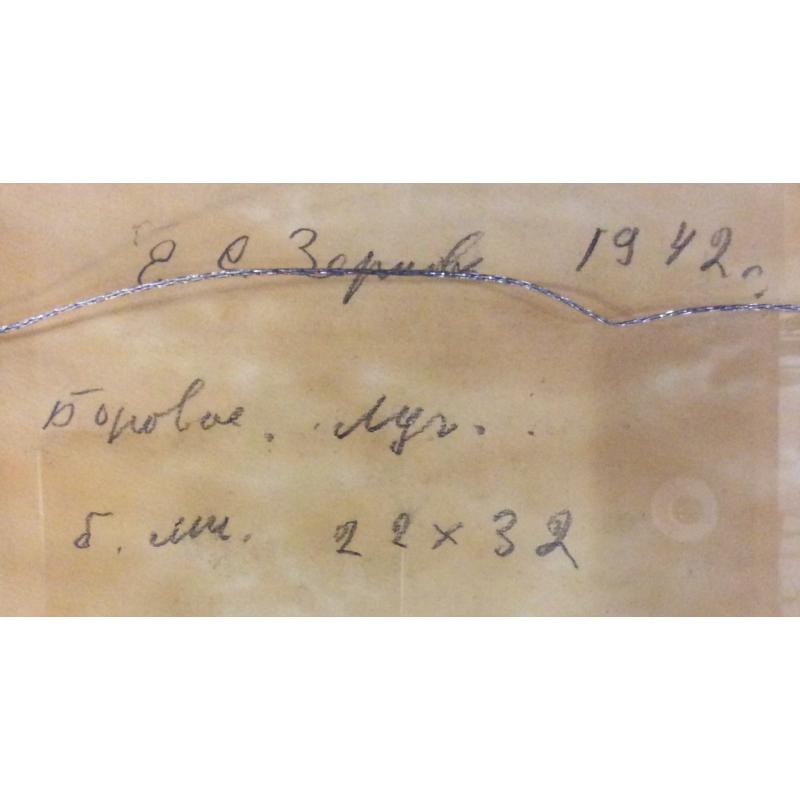 Е С Зернова 1942г.
Боровое. Луг.
б. 22 х 32